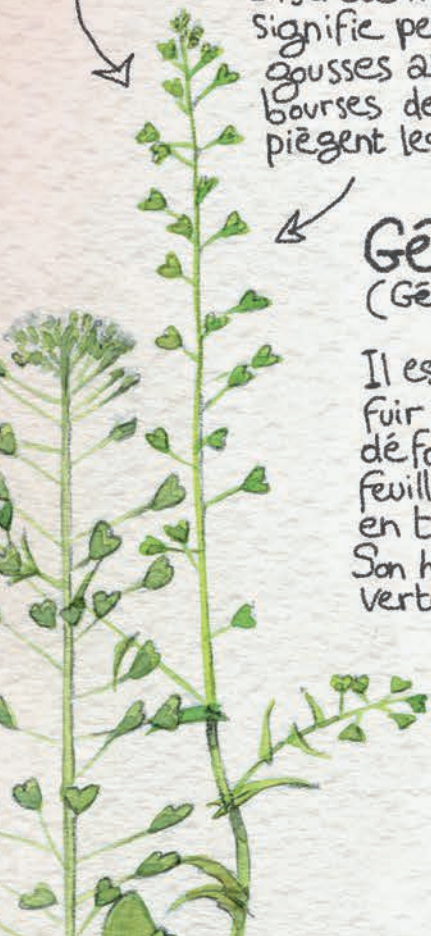 signifie pe
gousses a
bourses de
piègent les
Gé
(Gé
Il es
fuir
défa
feuill
en t
Son h
vert